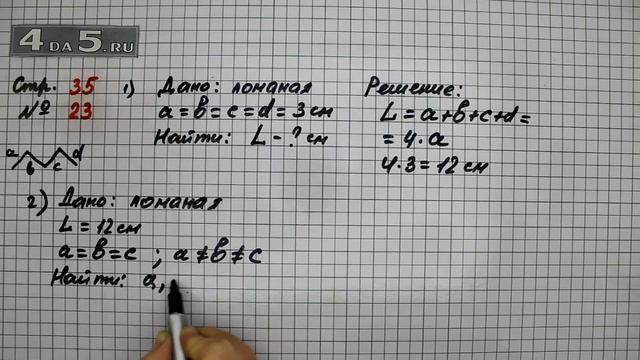 4DA5.RU
Стр. 35
№ 23
1) Дано: ломаная
a = b = c = d = 3 см
Найти: L - ? см
Решение:
L = a+b+c+d =
= 4 · a
4 · 3 = 12 см
a b c d
2) Дано: ломаная
L = 12 см
a = b = c ; a ≠ b ≠ c
Найти: a,